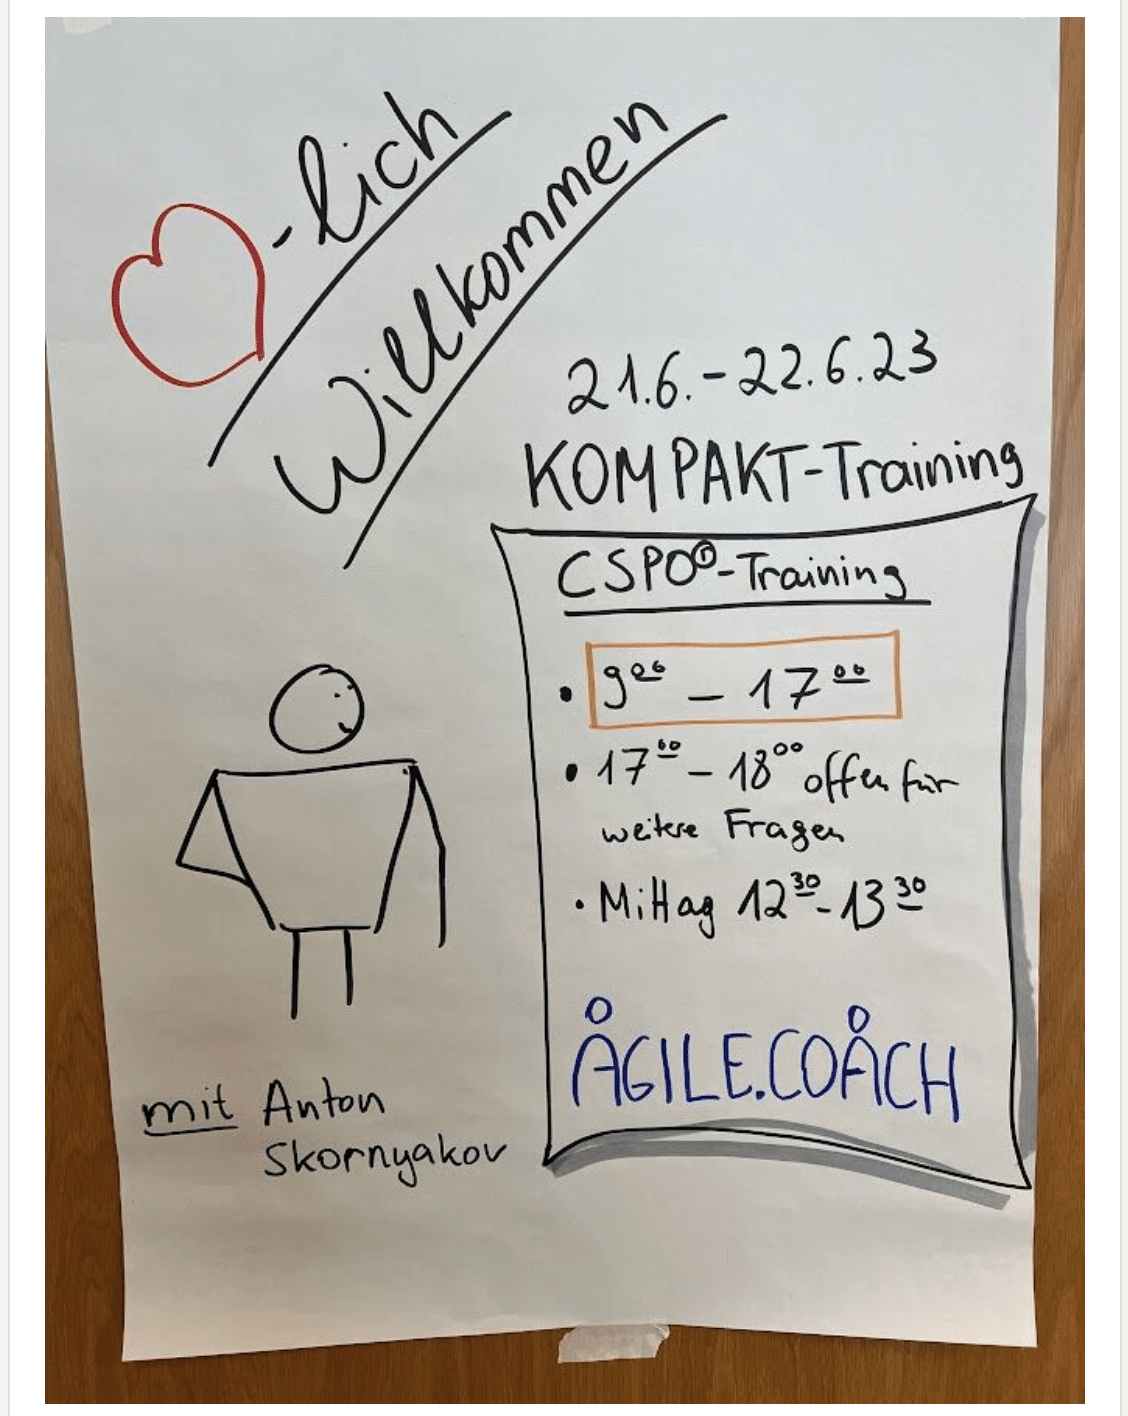 -lich
Willkommen
21.6.-22.6.23
KOMPAKT-Training
CSPO®-Training
• 9⁰⁰ – 17⁰⁰
• 17⁰⁰ – 18⁰⁰ offen für
weitere Fragen
• Mittag 12³⁰-13³⁰
ÅGILE.COÅCH
mit Anton
Skornyakov